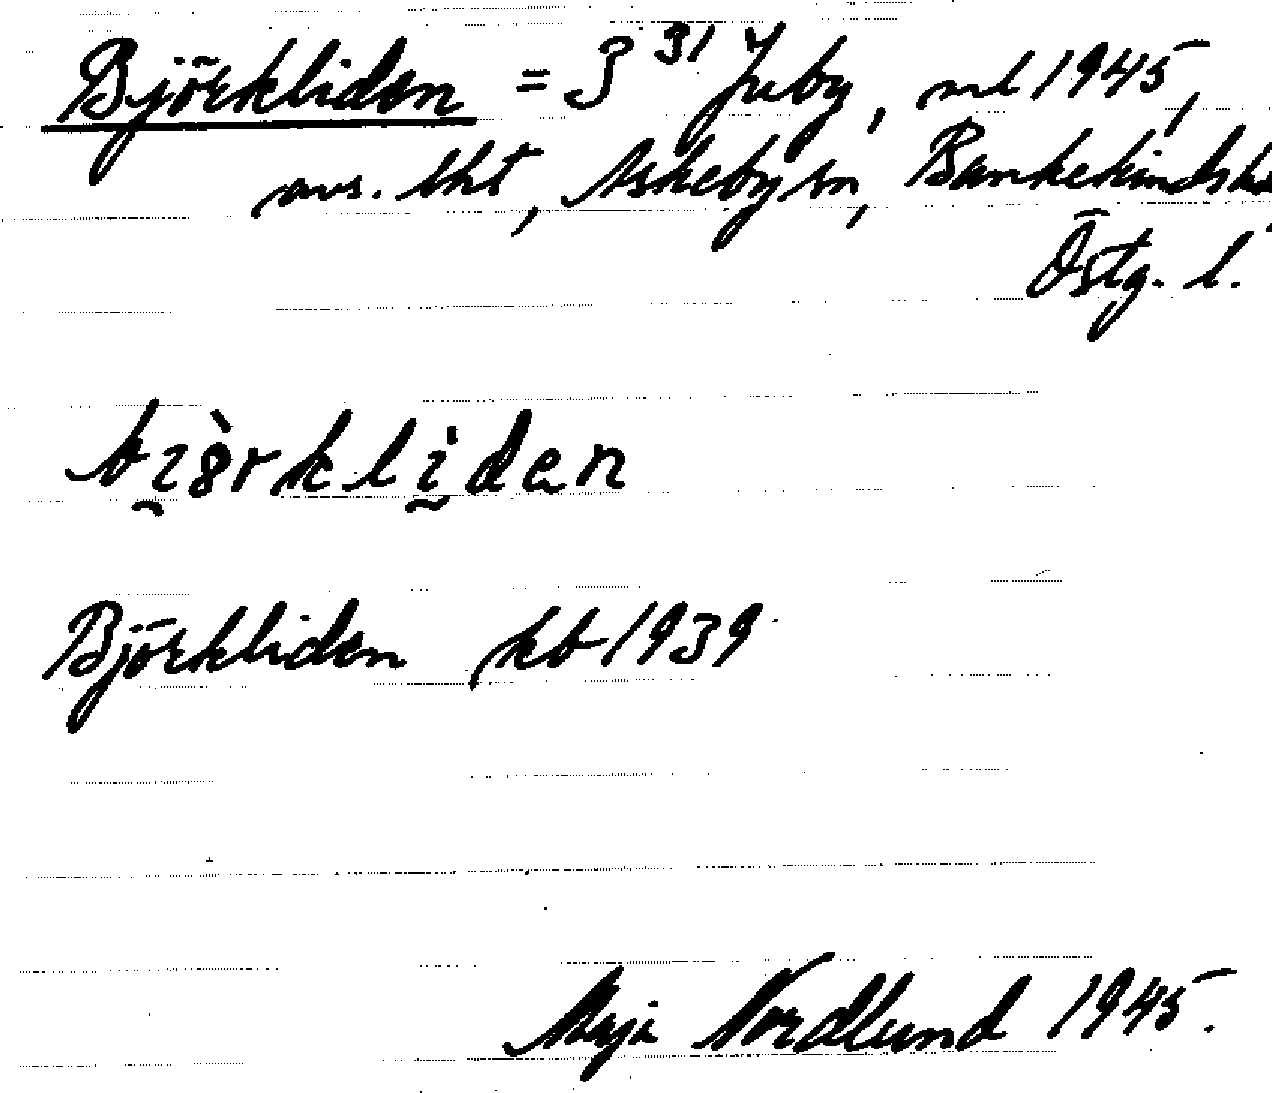 Björkliden = S 31 Juby, nl 1945,
avs. lht, Askeby sn, Bankekinds hd
Östg. l.
bi̯ö̀rkli̯den
Björkliden kb 1939
Maja Nordlund 1945.